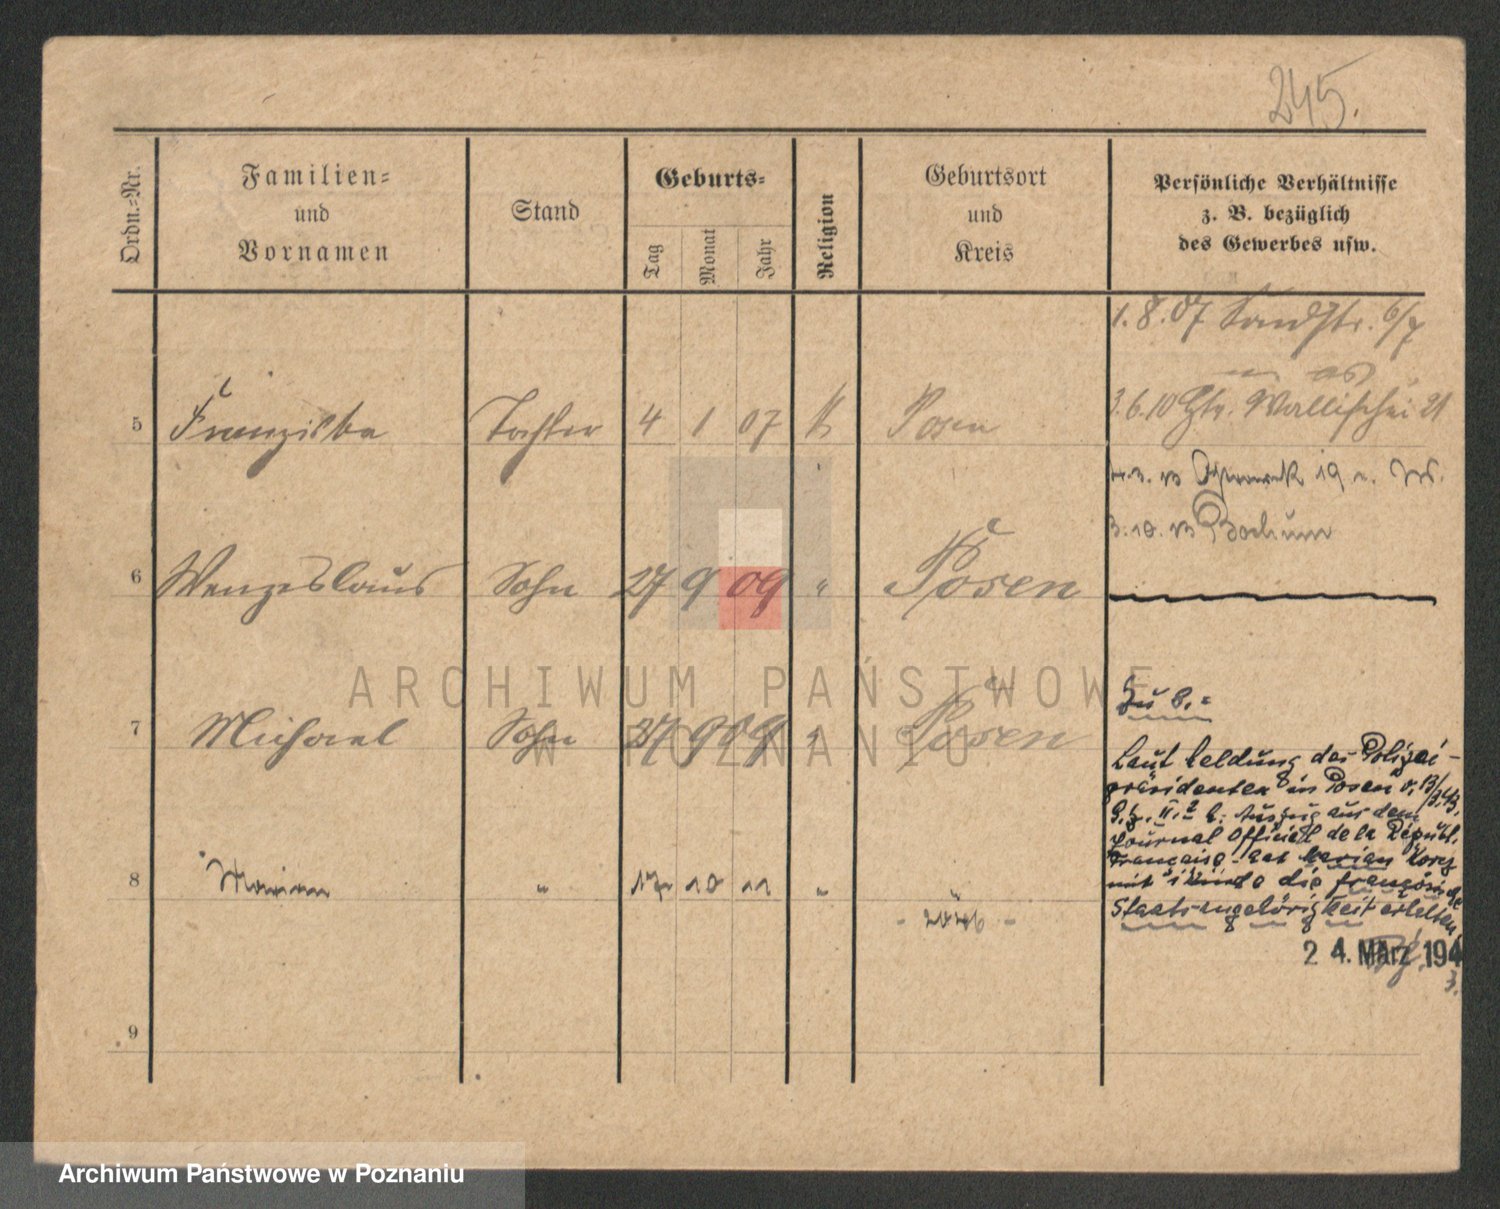 245.
Ordn.-Nr.
Familien-
und
Vornamen
Stand
Geburts-
Tag
Monat
Jahr
Religion
Geburtsort
und
Kreis
Persönliche Verhältnisse
z. B. bezüglich
des Gewerbes usw.
1.8.07 Sandstr. 6/7
5 Franziska Tochter 4 1 07 K Posen
3.6.10 Wallischei 21
19
3.10.13 Bochum
6 Wenzeslaus Sohn 27 9 09 " Posen
7 Michael Sohn 27 9 09 " Posen
8 Marian " 17 10 11 " "
Laut Meldung des Polizei-
präsidenten in Posen v. 13/3.43.
Auszug aus dem
Journal Officiel de la Républ.
Française hat Marian
mit die französische
Staatsangehörigkeit erhalten
24. März 1943.
9
ARCHIWUM PAŃSTWOWE
W POZNANIU
Archiwum Państwowe w Poznaniu